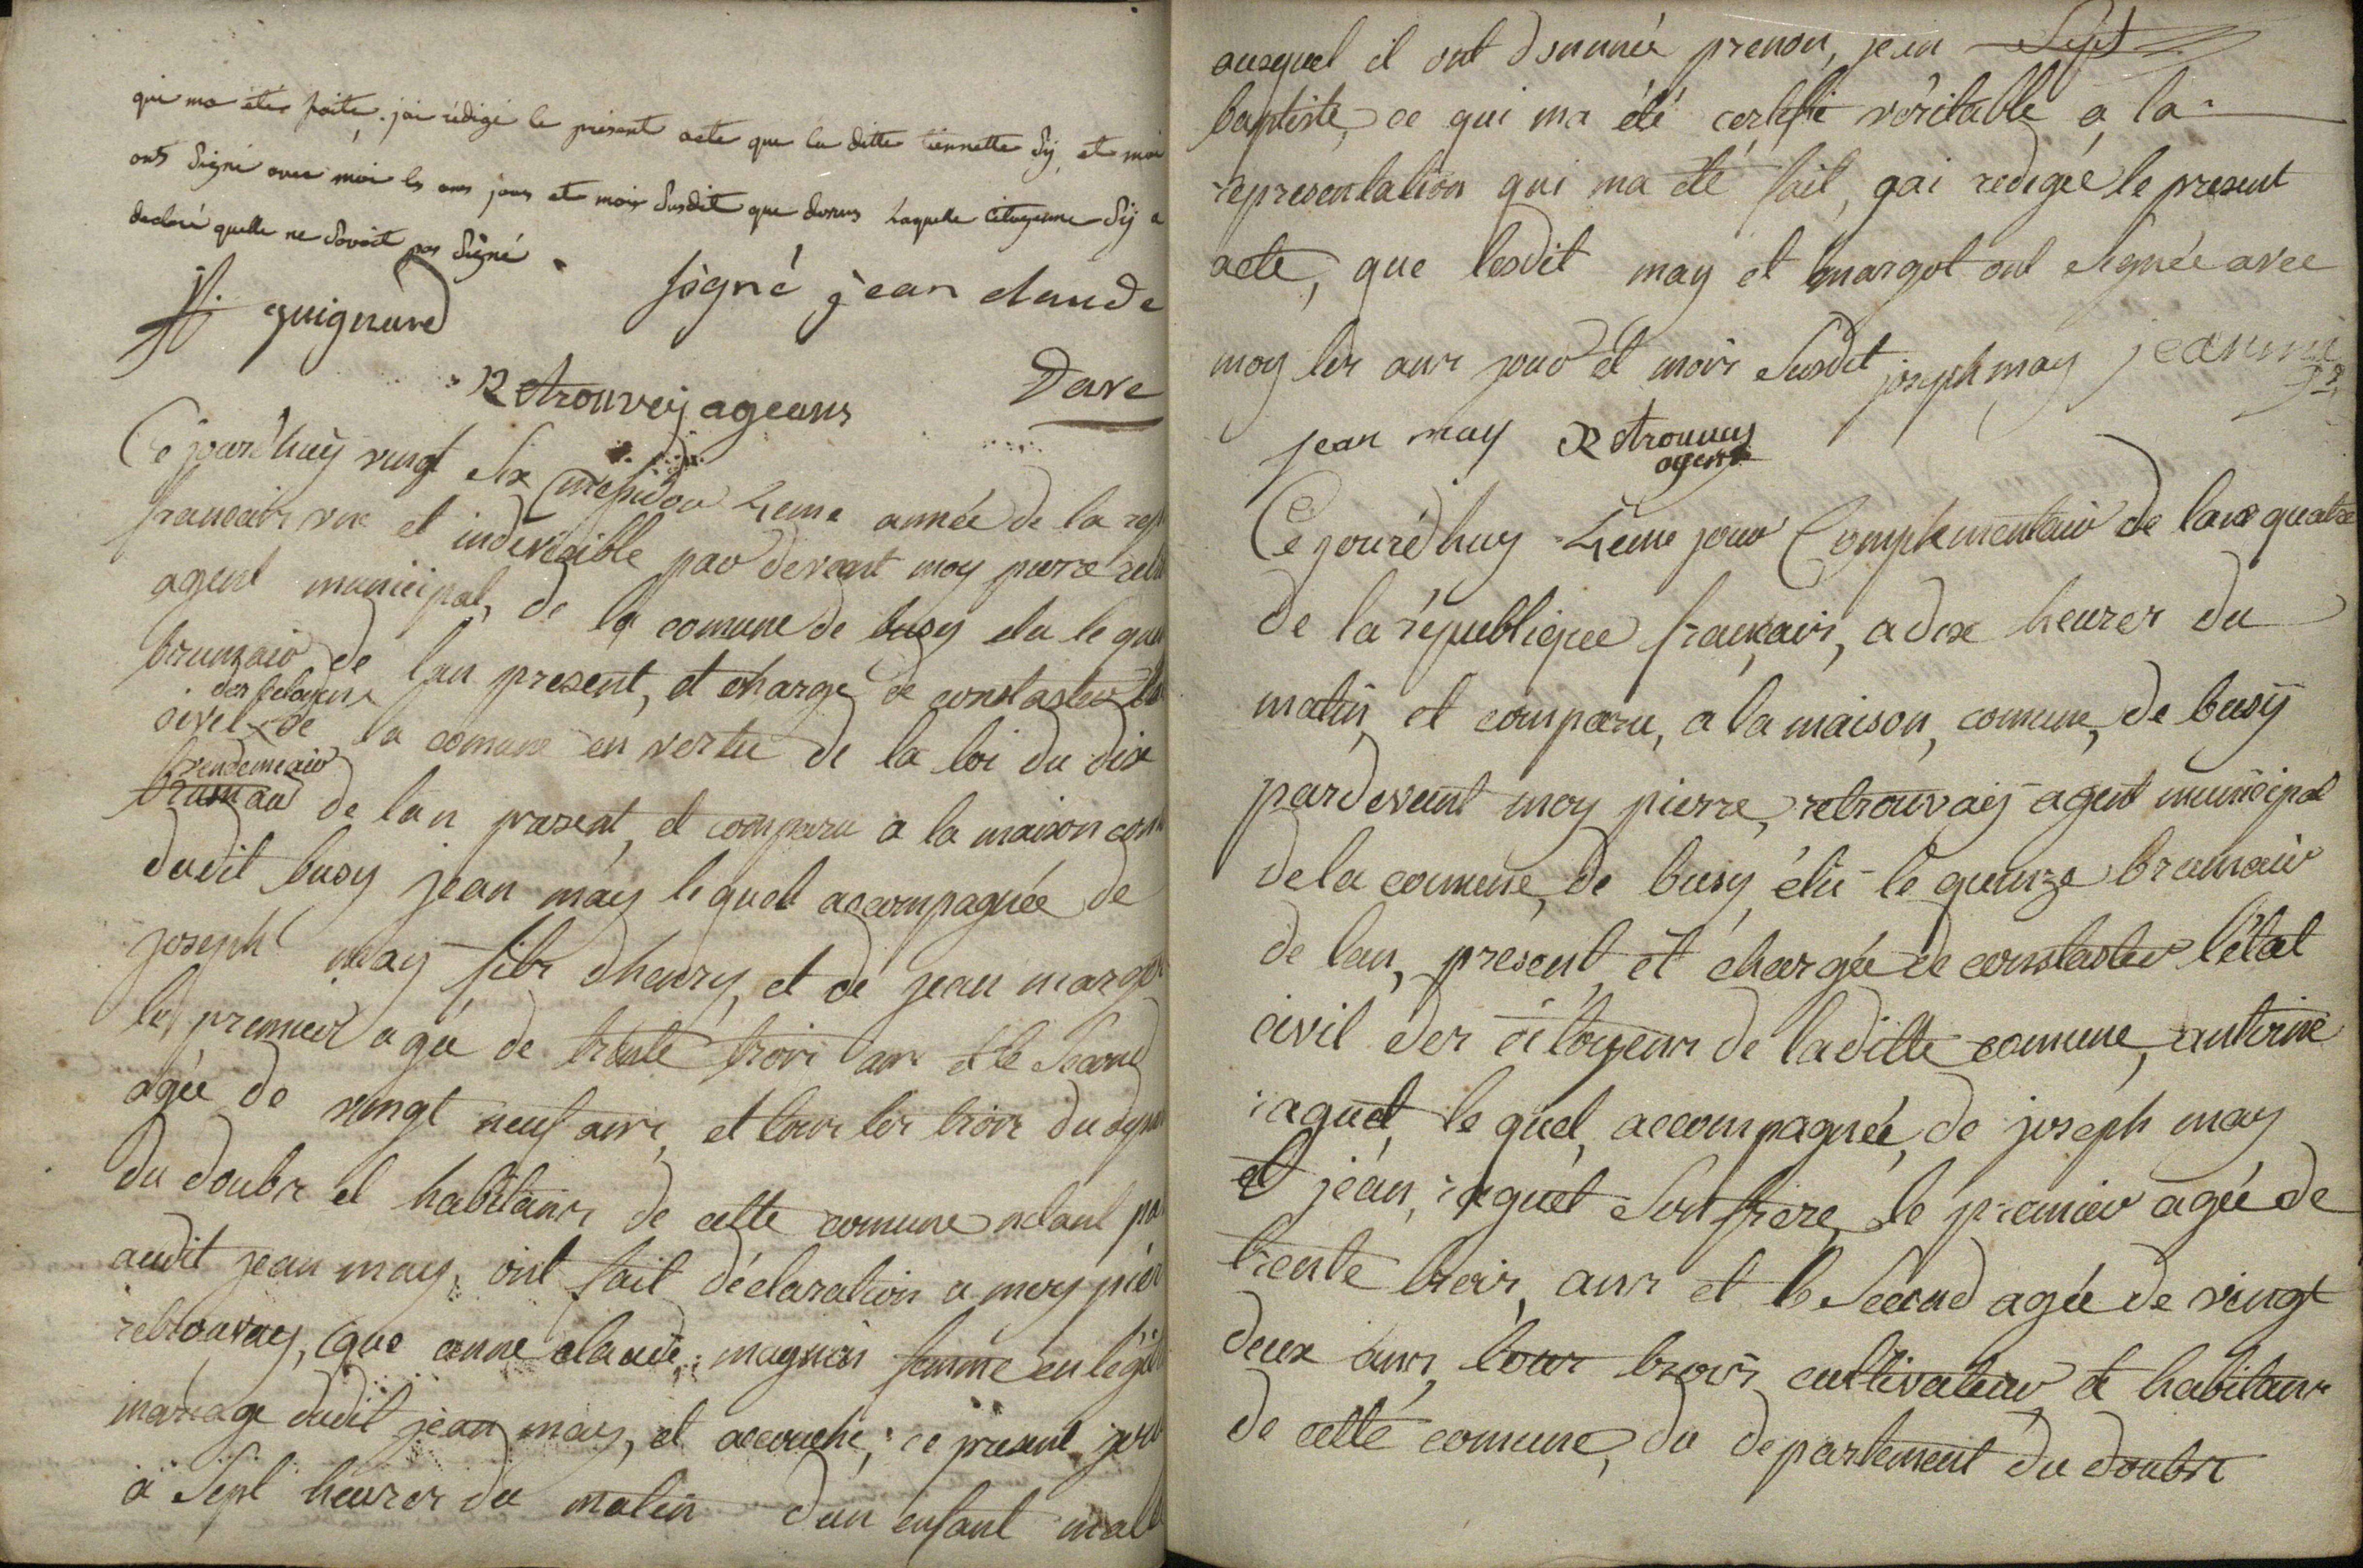 qui ma étés faite. jai rédigé le présent acte que la ditte tiennette Sÿ et moi
onts Signé avec moi les ans jour et mois Susdit que dessus laquelle citoyenne Sÿ a
declaré quelle ne Savoit pas Signé
guignard
signé jean claude
Dare
Retrouvey ageans
Ce jourdhuy vingt Six mesidor 4eme année de la rep
francais une et indévisible par devant moy pierre
agent municipal, de la comune de busy elu le
brumair de lan present, et chargé de constaster
des citoyens
civil de la comune en vertu de la loi du dix
vendemair
brumair de lan present, et comparu a la maison com
dudit busy jean may lequel accompagnée de
joseph may fils dhenry, et de jean margot
le premier agée de trente trois ans et le Second
agée de vingt neuf ans, et tous les trois du
du doubs et habitans de cette comune
audit jean may, ont fait déclaration a moy pier
retrouvay, que anne claude, magnin femme en légit
mariage dudit jean may, et accouché, ce présent jour
a Sept heures du matin dun enfant mal
auxquel il ont donnnée prenon, jean Sept
baptiste, ce qui ma été certifié véritable a la
representation qui ma été fait, gai redigée le present
acte, que lesdit may et margot ont Signée avec
moy les ans jour et mois Susdit joseph may jean
jean may Retrouvey
agent
Ce jourdhuy 4eme jour Complementair de lans quatre
de la république francais, a dix heures du
matin, et comparu, a la maison, comune, de busÿ
pardevant moy pierre, retrouvaÿ agent municipal
de la comune, de busy, élu le quinze brumair
de lan, present, et chargée de constaster létat
civil des citoyens de laditte comune, antoine
raguet, le quel, accompagnée, de joseph may
et jean, raguet Son frere, le premier agée de
trente trois, ans et le Second agée de vingt
deux ans, tous trois cultivateur et habitans
de cette comune, du departement du doubs